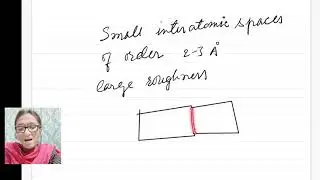 Small interatomic spaces
of order 2-3 Å
large roughness